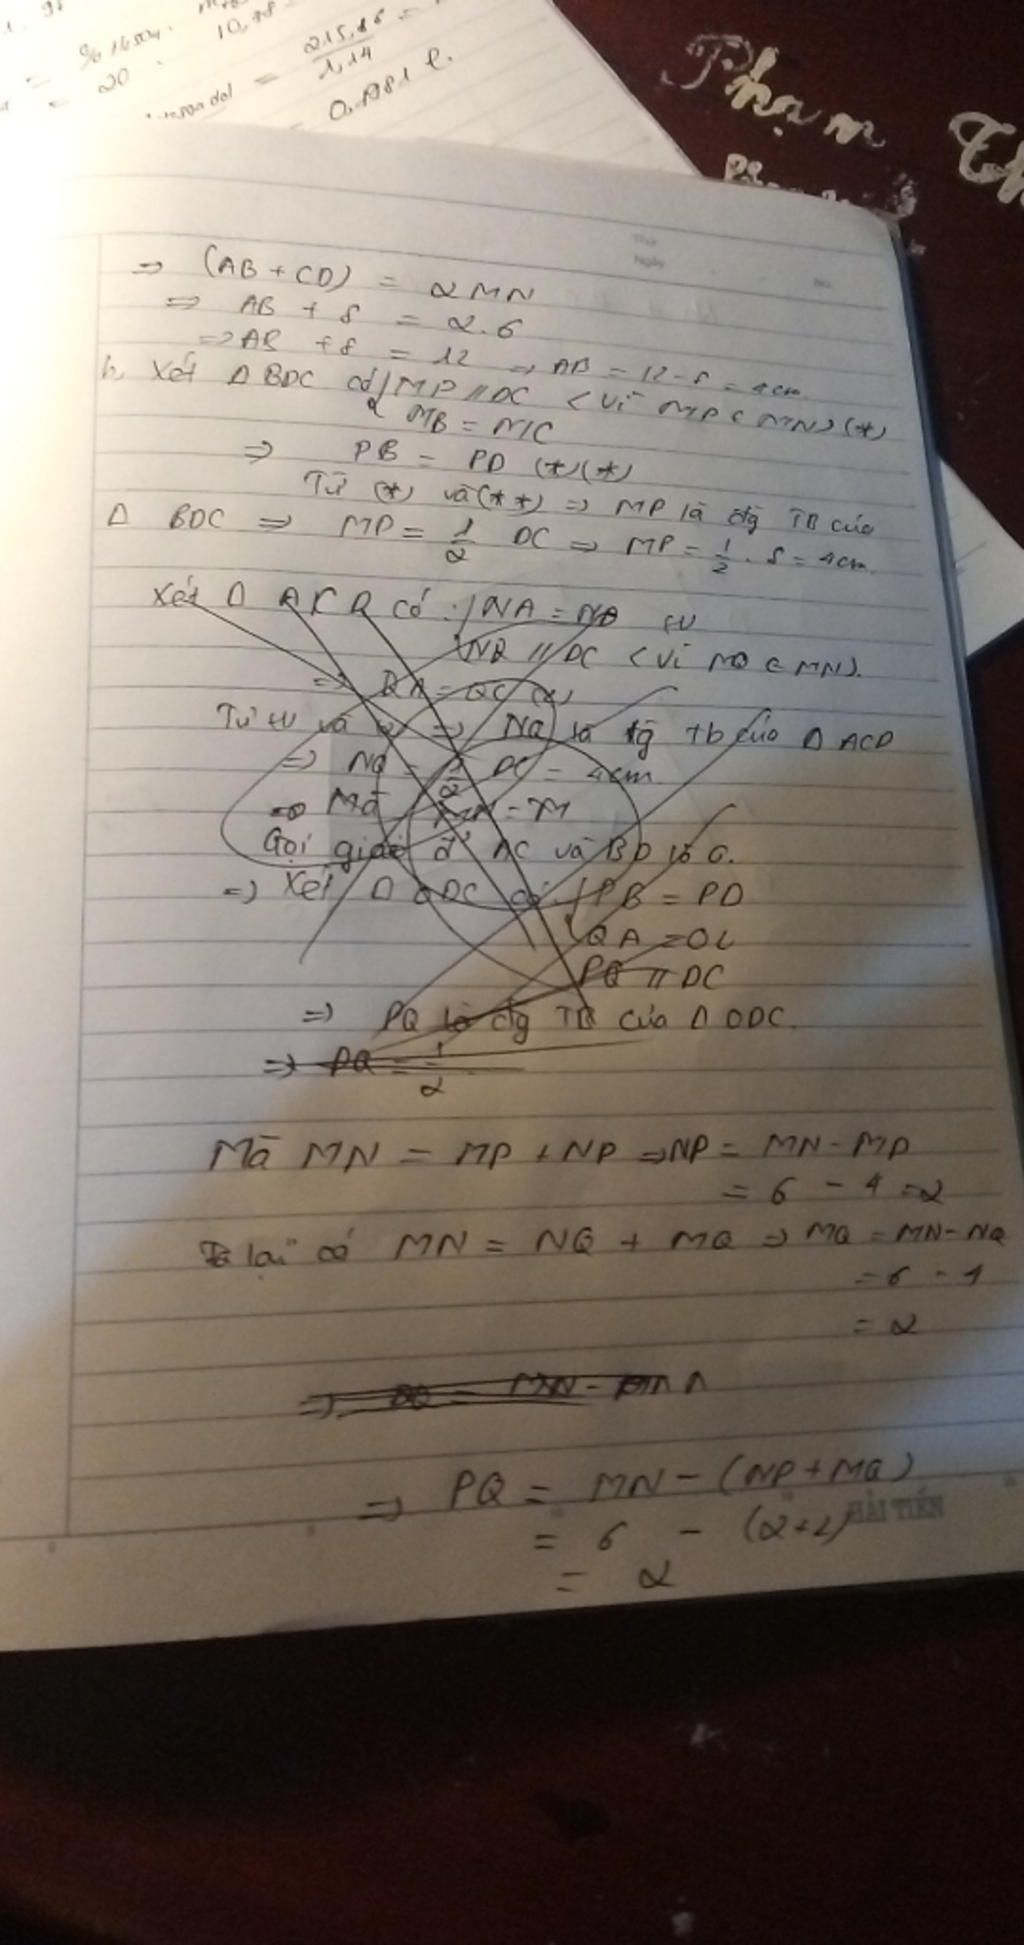 = 20
10,98
215,86
1,14
= 0,1981 l.
Phạm Th
Thứ
Ngày
No.
=> (AB + CD) = 2MN
=> AB + 8 = 2.6
=> AB + 8 = 12 => AB = 12 - 8 = 4cm
b, Xét Δ BDC có MP // DC < Vì MP ⊂ MN) (*)
MB = MC
=> PB = PD (*)(*)
Từ (*) và (**) => MP là đg TB của
Δ BDC => MP = 1/2 DC => MP = 1/2 . 8 = 4cm.
Xét Δ có: NA =
NQ // DC < Vì NQ ⊂ MN).
=> QA = QC
Từ và => NQ là đg tb của Δ ACD
=> NQ = 1/2 DC = 4cm
Mà MN = M
Gọi giao đ' AC và BD là O.
=> Xét Δ ODC có PB = PD
QA = QC
PQ // DC
=> PQ là đg TB của Δ ODC.
=> PQ = 1/2
Mà MN = MP + NP => NP = MN - MP
= 6 - 4 = 2
lại có MN = NQ + MQ => MQ = MN - NQ
= 6 - 4
= 2
=> PQ = MN - (NP + MQ)
HẢI TIẾN
= 6 - (2+2)
= 2